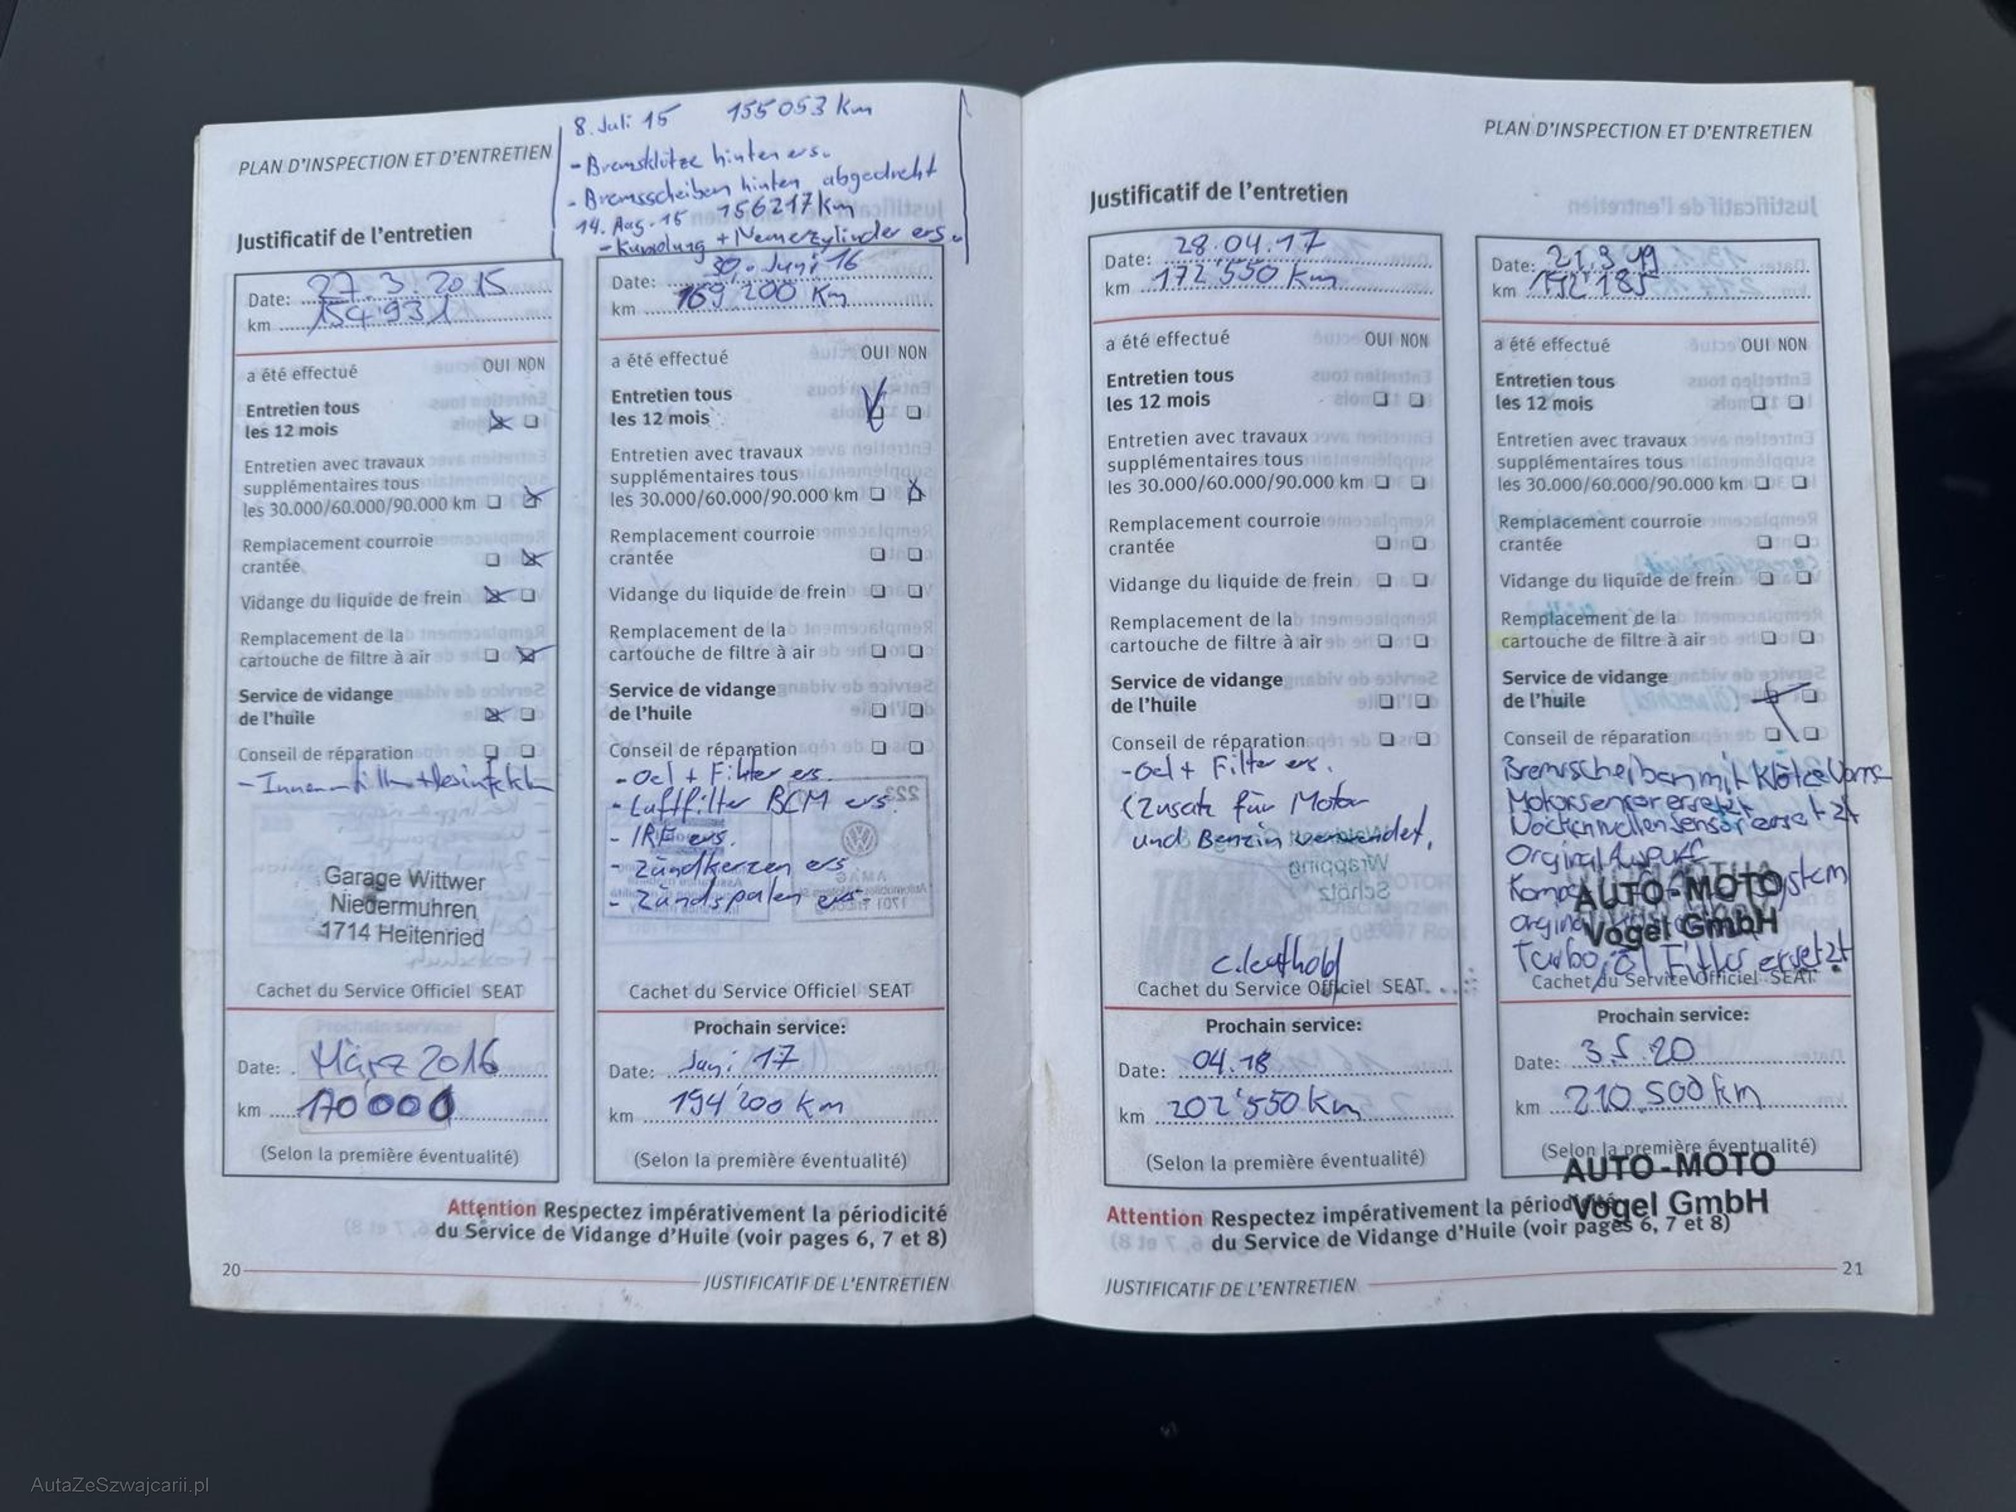 PLAN D'INSPECTION ET D'ENTRETIEN
8. Juli 15 155053 km
- Bremsklötze hinten ers.
- Bremsscheiben hinten abgedreht
14. Aug. 15 156217 km
- Kupplung + Nemerzylinder ers.
Justificatif de l'entretien
Date: 27.3.2015
km 154'931
a été effectué OUI NON
Entretien tous
les 12 mois
Entretien avec travaux
supplémentaires tous
les 30.000/60.000/90.000 km
Remplacement courroie
crantée
Vidange du liquide de frein
Remplacement de la
cartouche de filtre à air
Service de vidange
de l'huile
Conseil de réparation
Garage Wittwer
Niedermuhren
1714 Heitenried
Cachet du Service Officiel SEAT
Date: März 2016
km 170'000
(Selon la première éventualité)
Date: 30. Juni 16
km 169'200 Km
a été effectué OUI NON
Entretien tous
les 12 mois
Entretien avec travaux
supplémentaires tous
les 30.000/60.000/90.000 km
Remplacement courroie
crantée
Vidange du liquide de frein
Remplacement de la
cartouche de filtre à air
Service de vidange
de l'huile
Conseil de réparation
- Oel + Filter ers.
- Luftfilter BCM ers
- IRF ers.
- Zündkerzen ers
- Zündspalen ers
Cachet du Service Officiel SEAT
Prochain service:
Date: Juni 17
km 194'200 km
(Selon la première éventualité)
Attention Respectez impérativement la périodicité
du Service de Vidange d'Huile (voir pages 6, 7 et 8)
20
JUSTIFICATIF DE L'ENTRETIEN
PLAN D'INSPECTION ET D'ENTRETIEN
Justificatif de l'entretien
Date: 28.04.17
km 172'550 km
a été effectué OUI NON
Entretien tous
les 12 mois
Entretien avec travaux
supplémentaires tous
les 30.000/60.000/90.000 km
Remplacement courroie
crantée
Vidange du liquide de frein
Remplacement de la
cartouche de filtre à air
Service de vidange
de l'huile
Conseil de réparation
- Oel + Filter ers.
(Zusatz für Motor
und Benzin verwendet,
C. Leuthold
Cachet du Service Officiel SEAT
Prochain service:
Date: 04.18
km 202'550 km
(Selon la première éventualité)
Date: 21.3.19
km 192'185
a été effectué OUI NON
Entretien tous
les 12 mois
Entretien avec travaux
supplémentaires tous
les 30.000/60.000/90.000 km
Remplacement courroie
crantée
Vidange du liquide de frein
Remplacement de la
cartouche de filtre à air
Service de vidange
de l'huile
Conseil de réparation
Bremsscheiben mit Klötze Vorne
Motorsensor ersetzt
Nockenwellensensor ersetzt
Orginal Auspuff
AUTO-MOTO
Vogel GmbH
Turbo, Öl Filter ersetzt
Cachet du Service Officiel SEAT
Prochain service:
Date: 3.5.20
km 210.500 km
(Selon la première éventualité)
AUTO-MOTO
Vogel GmbH
Attention Respectez impérativement la périodicité
du Service de Vidange d'Huile (voir pages 6, 7 et 8)
JUSTIFICATIF DE L'ENTRETIEN
21
AutaZeSzwajcarii.pl